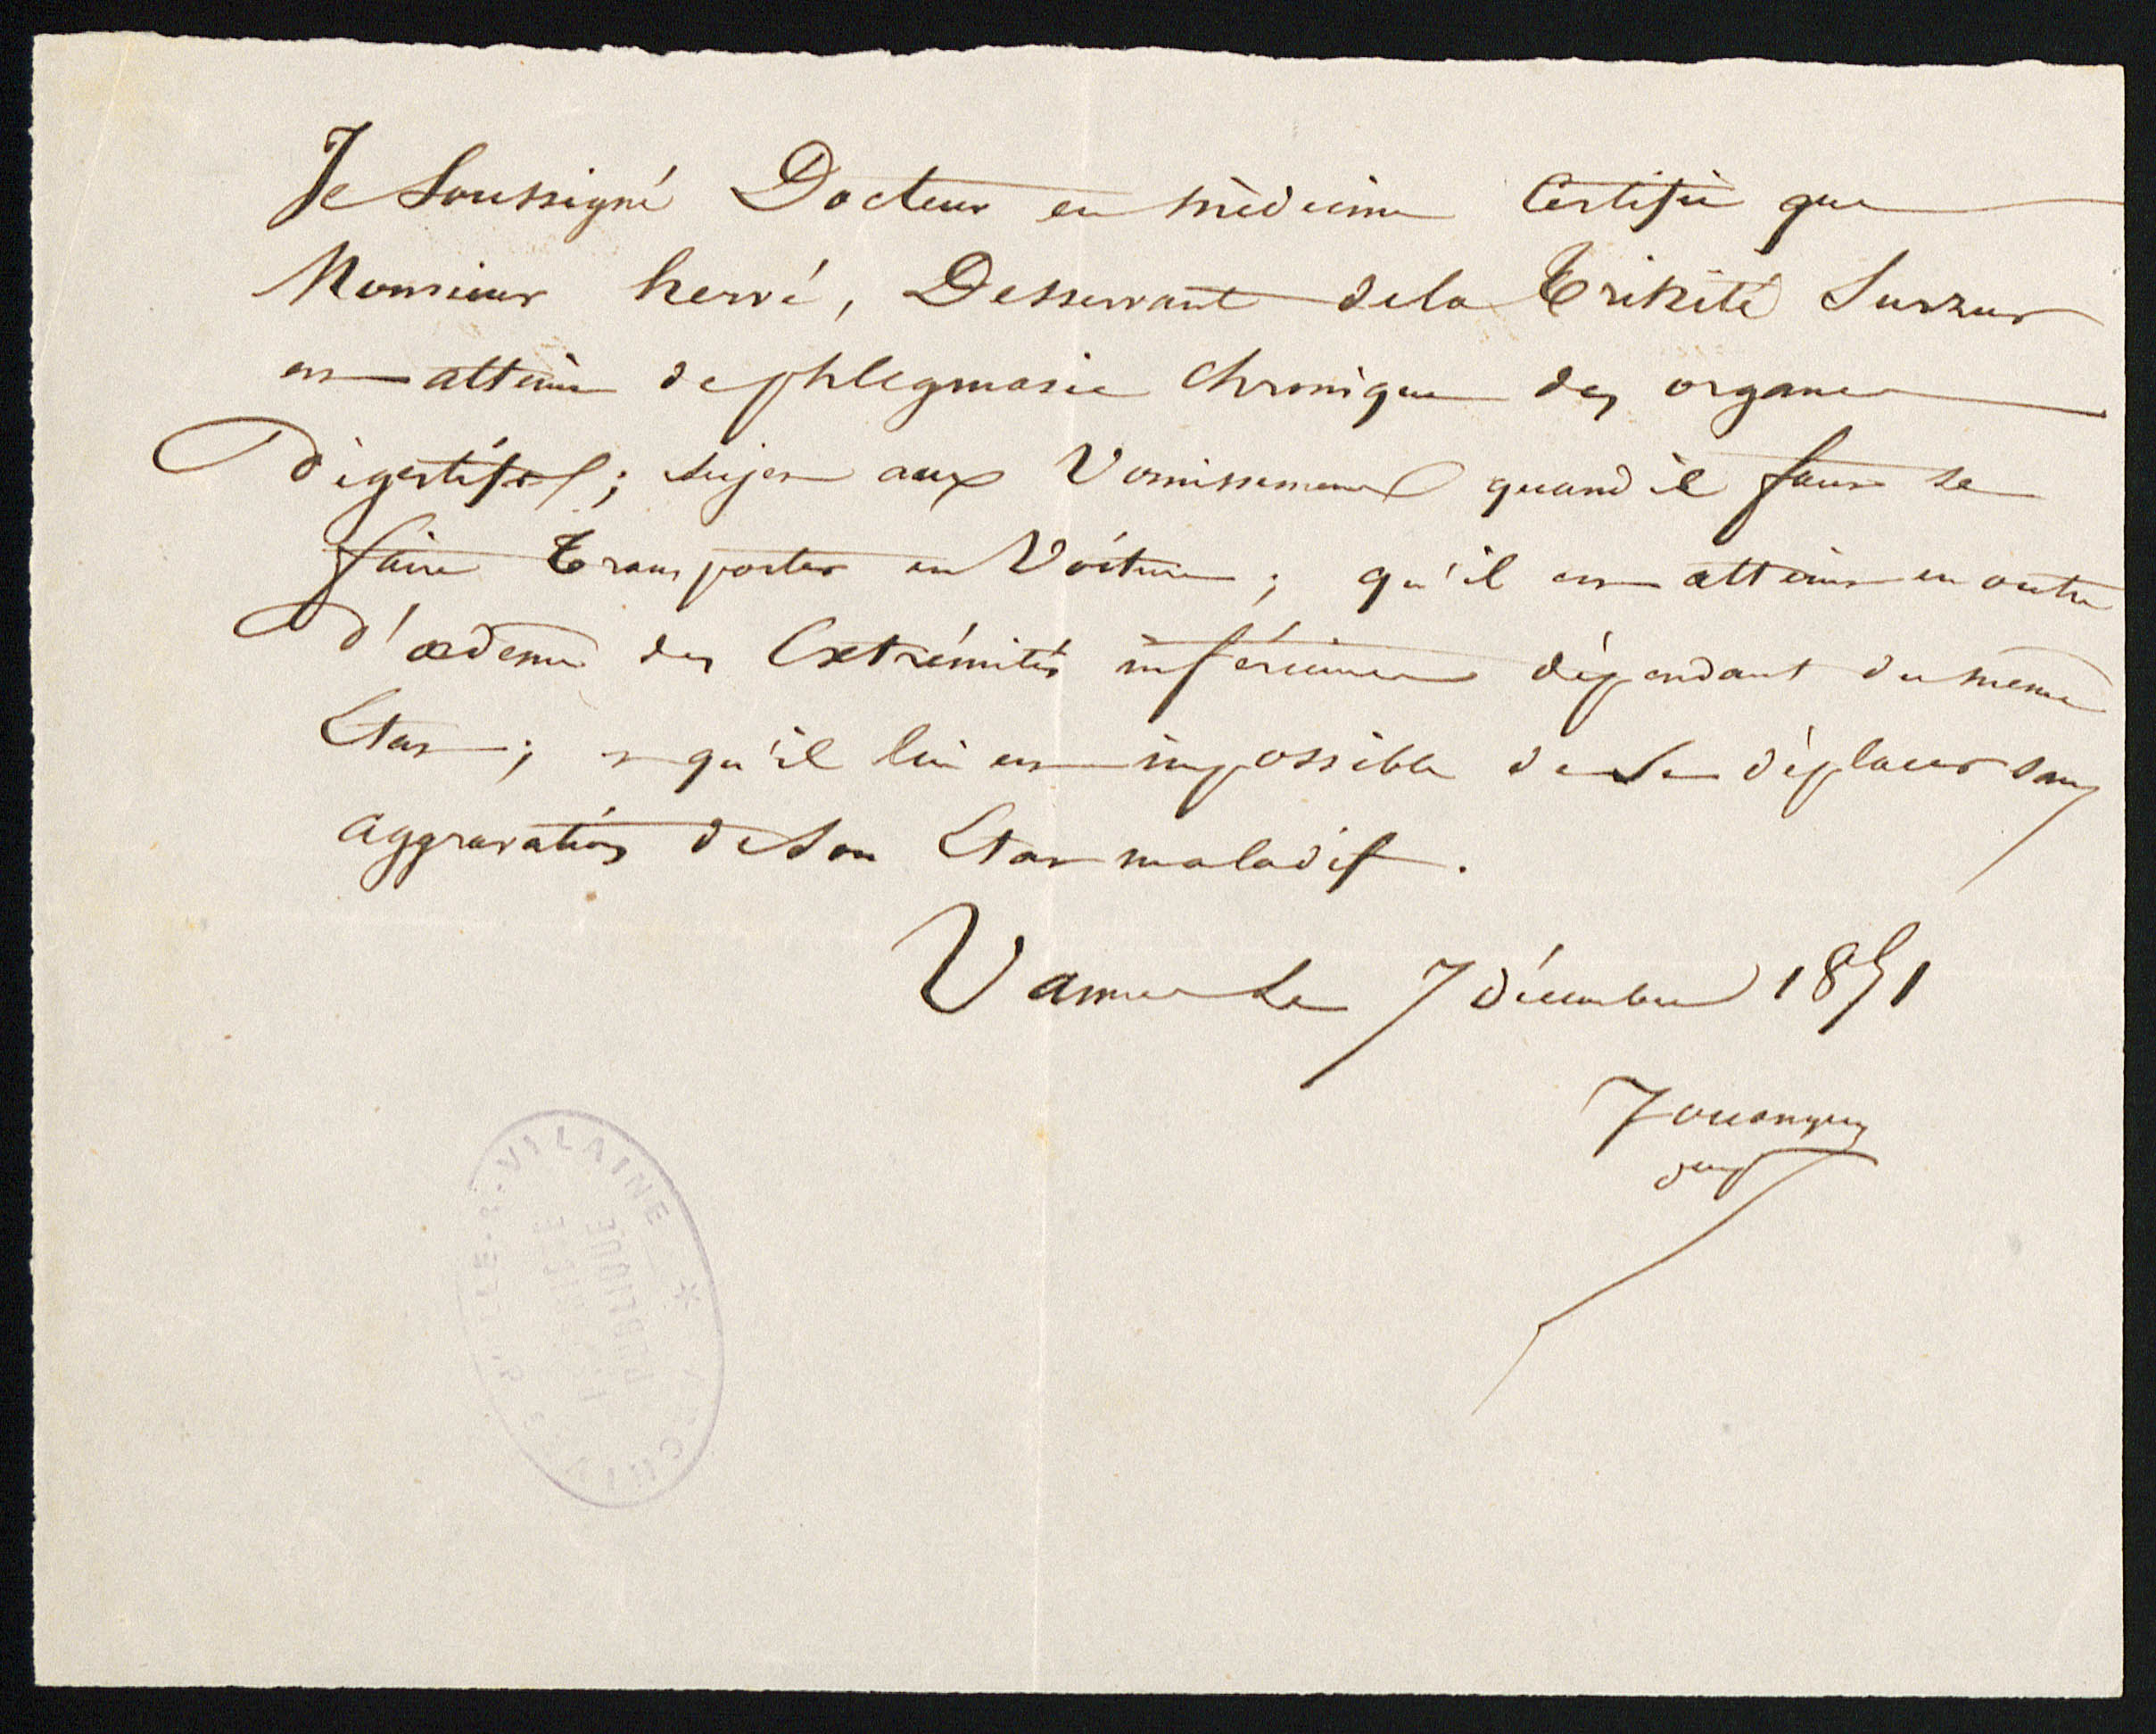 Je Soussigné Docteur en médecine Certifie que
Monsieur hervé, Desservant de la Trinité Surzur
est atteint de phlegmasie chronique des organes
digestifs ; sujet aux Vomissements quand il faut se
faire Transporter en Voiture ; qu'il est atteint en outre
d'œdeme des Extrémités inférieures dépendant du même
Etat ; et qu'il lui est impossible de Se déplacer sans
aggravation de Son Etat maladif.
Vannes Le 7 décembre 1851
Jouanguy
ARCHIVES D'ILLE-&-VILAINE *
PUBLIQUE